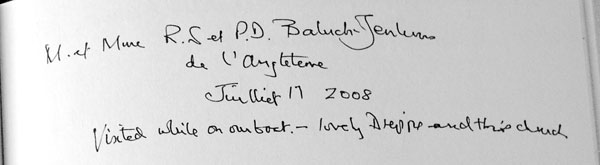 M. et Mme R.S et P.D. Baluch-Jenkins
de l'Angleterre
Juilliet 17 2008
Visited while on our boat. – lovely Dieppe and this church